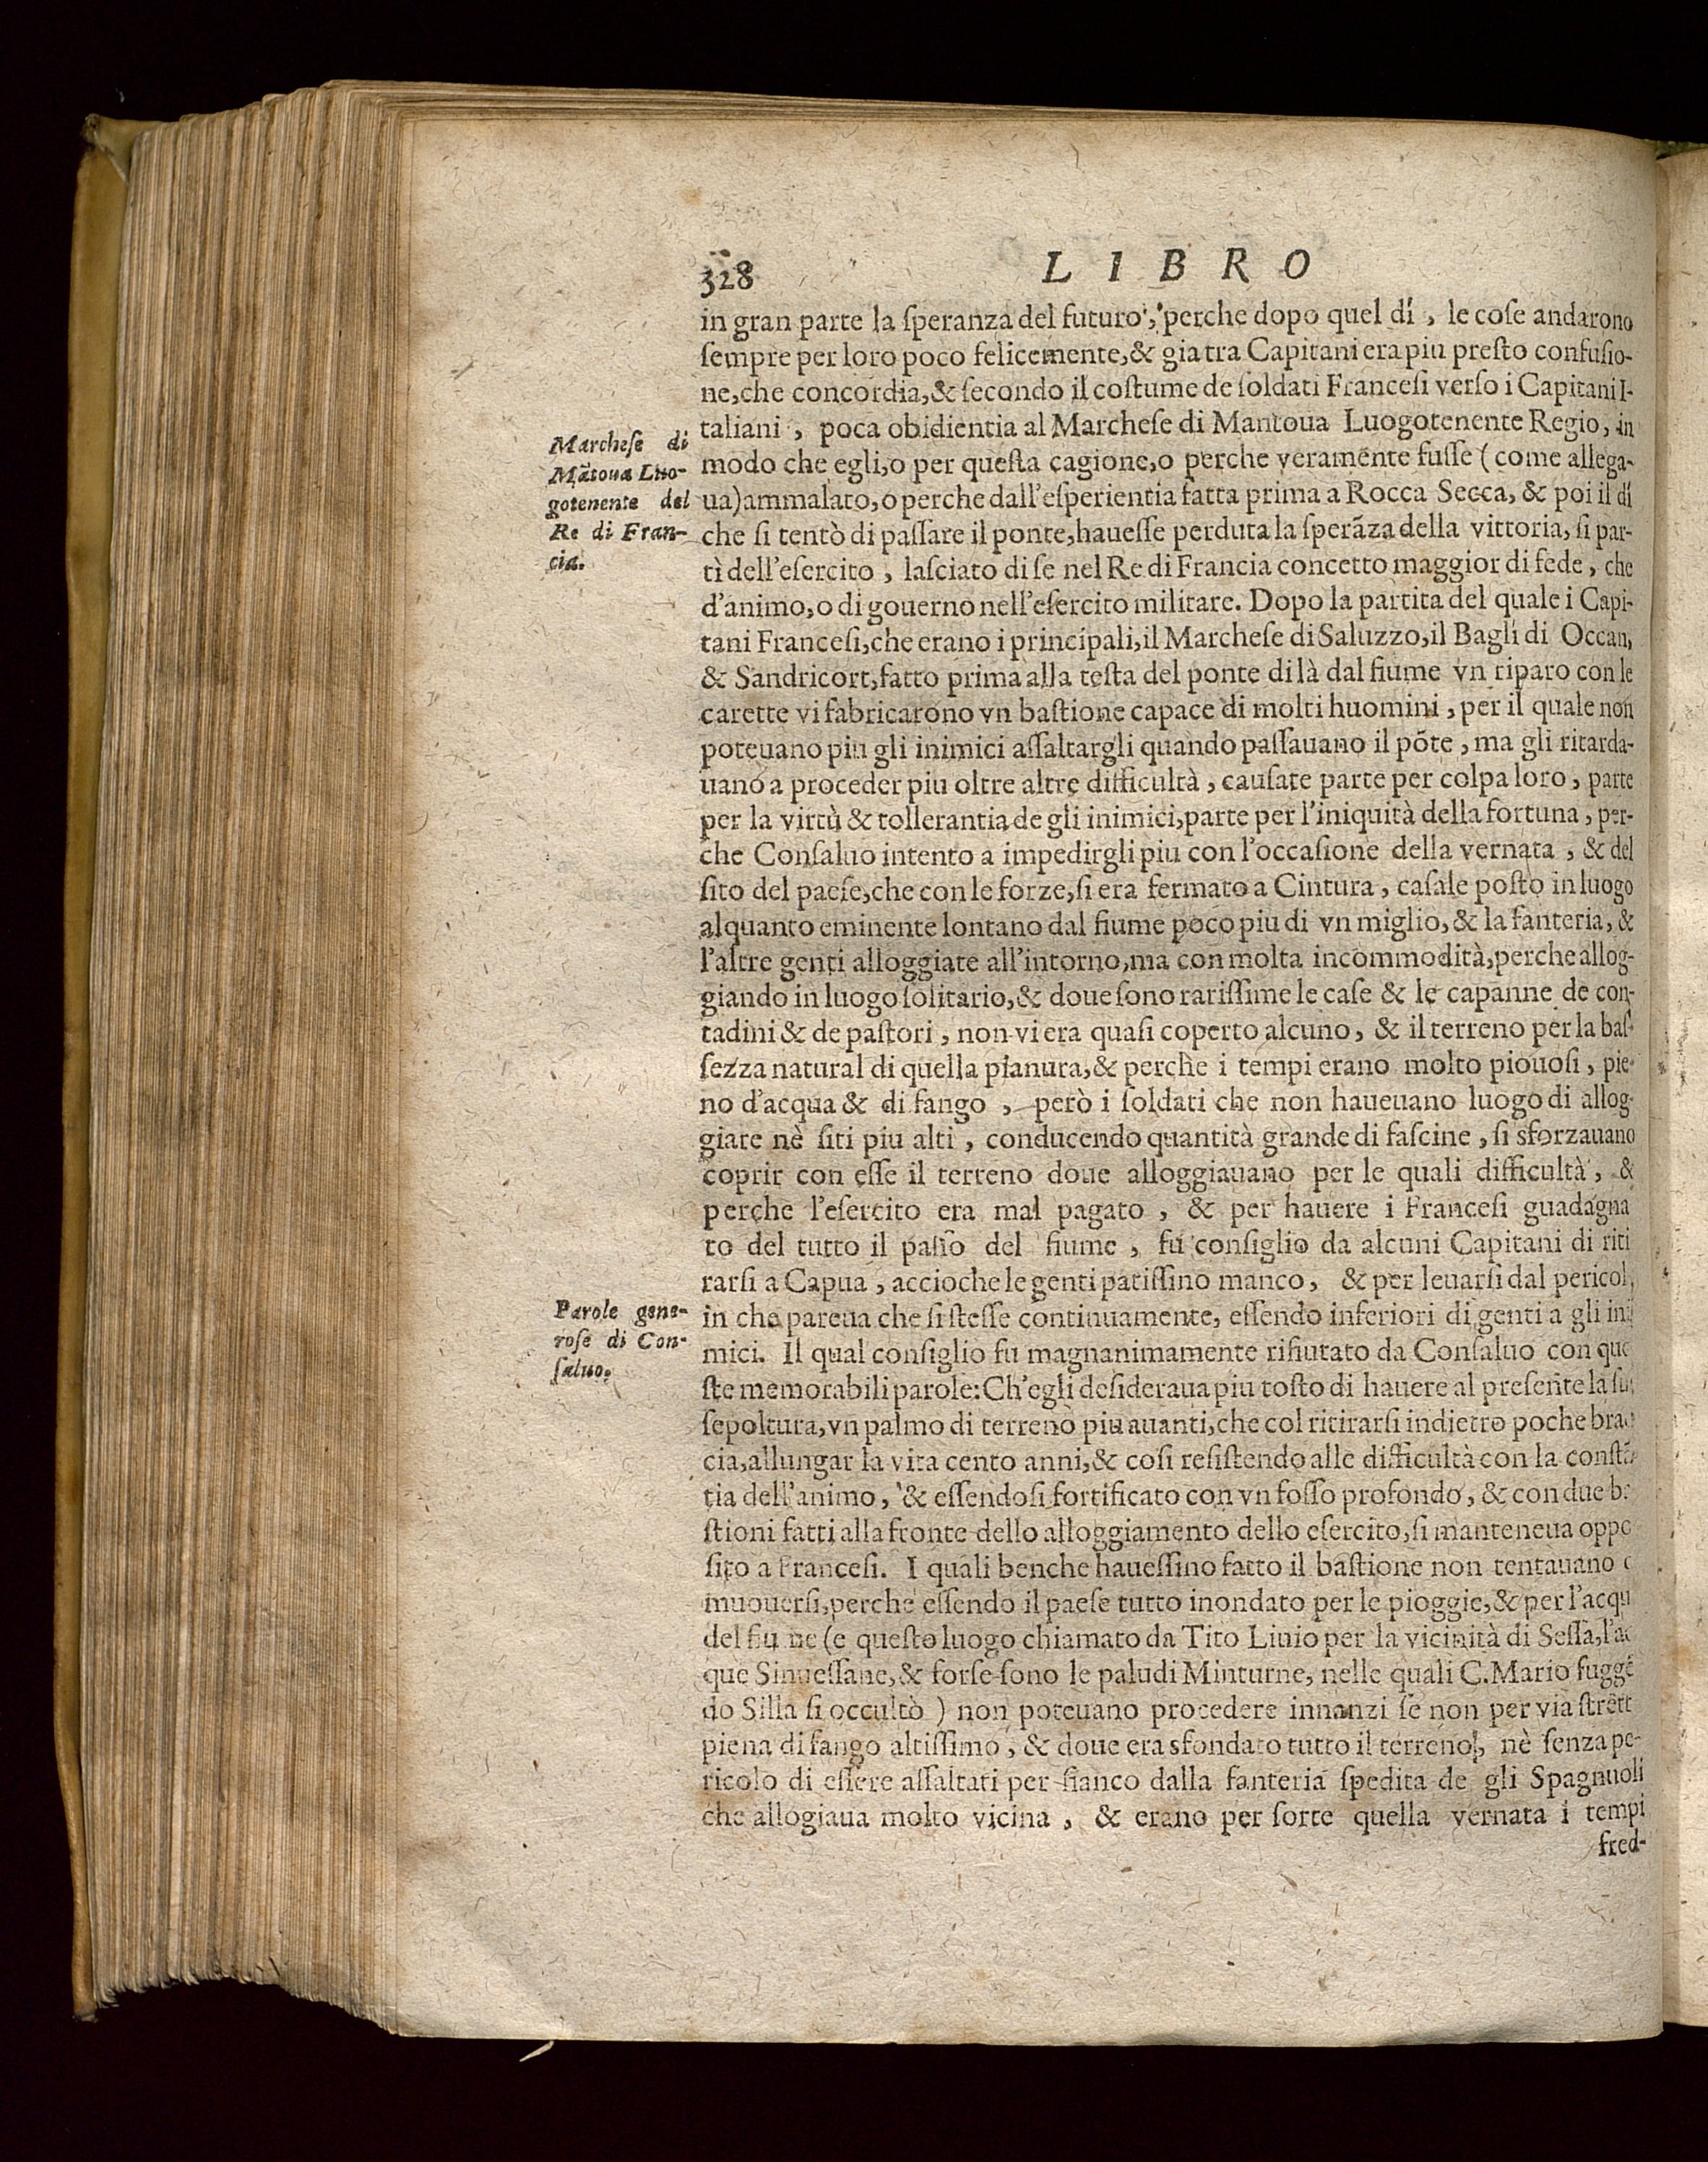 328 LIBRO
in gran parte la ſperanza del futuro, perche dopo quel dí, le coſe andarono
ſempre per loro poco felicemente,& gia tra Capitani era piu preſto confuſio-
ne,che concordia,& ſecondo il coſtume de ſoldati Franceſi verſo i Capitani I-
taliani, poca obidientia al Marcheſe di Mantoua Luogotenente Regio, in
modo che egli,o per queſta cagione,o perche veramẽnte fuſſe (come allega-
ua)ammalato,o perche dall'eſperientia fatta prima a Rocca Secca, & poi il dí
che ſi tentò di paſſare il ponte,haueſſe perduta la ſperãza della vittoria, ſi par-
tì dell'eſercito, laſciato di ſe nel Re di Francia concetto maggior di fede, che
d'animo,o di gouerno nell'eſercito militare. Dopo la partita del quale i Capi-
tani Franceſi,che erano i principali,il Marcheſe di Saluzzo,il Baglí di Occan,
& Sandricort,fatto prima alla teſta del ponte di là dal fiume vn riparo con le
carette vi fabricarono vn baſtione capace di molti huomini, per il quale non
poteuano piu gli inimici aſſaltargli quando paſſauano il põte, ma gli ritarda-
uano a proceder piu oltre altre difficultà, cauſate parte per colpa loro, parte
per la virtù & tollerantia de gli inimici,parte per l'iniquità della fortuna, per-
che Conſaluo intento a impedirgli piu con l'occaſione della vernata, & del
ſito del paeſe,che con le forze,ſi era fermato a Cintura, caſale poſto in luogo
alquanto eminente lontano dal fiume poco piu di vn miglio,& la fanteria, &
l'altre genti alloggiate all'intorno,ma con molta incommodità,perche allog-
giando in luogo ſolitario,& doue ſono rariſſime le caſe & le capanne de con-
tadini & de paſtori, non vi era quaſi coperto alcuno, & il terreno per la baſ-
ſezza natural di quella pianura,& perche i tempi erano molto piouoſi, pie-
no d'acqua & di fango, però i ſoldati che non haueuano luogo di allog-
giare nè ſiti piu alti, conducendo quantità grande di faſcine, ſi sforzauano
coprir con eſſe il terreno doue alloggiauano per le quali difficultà, &
perche l'eſercito era mal pagato, & per hauere i Franceſi guadagna
to del tutto il paſſo del fiume, fu conſiglio da alcuni Capitani di riti
rarſi a Capua, accioche le genti patiſſino manco, & per leuarſi dal pericol
in che pareua che ſi ſteſſe continuamente, eſſendo inferiori di genti a gli ini
mici. Il qual conſiglio fu magnanimamente rifiutato da Conſaluo con que
ſte memorabili parole:Ch'egli deſideraua piu toſto di hauere al preſente la ſu
ſepoltura,vn palmo di terreno piu auanti,che col ritirarſi indietro poche brac
cia,allungar la vita cento anni,& coſi reſiſtendo alle difficultà con la conſtã
tia dell'animo, & eſſendoſi fortificato con vn foſſo profondo, & con due ba
ſtioni fatti alla fronte dello alloggiamento dello eſercito,ſi manteneua oppo
ſito a Franceſi. I quali benche haueſſino fatto il baſtione non tentauano
muouerſi,perche eſſendo il paeſe tutto inondato per le pioggie,& per l'acqu
del fiume (e queſto luogo chiamato da Tito Liuio per la vicinità di Seſſa,l'ac
que Sinueſſane,& forſe ſono le paludi Minturne, nelle quali C.Mario fuggẽ
do Silla ſi occultò ) non poteuano procedere innanzi ſe non per via ſtrett
piena di fango altiſſimo, & doue era sfondato tutto il terreno, nè ſenza pe-
ricolo di eſſere aſſaltati per fianco dalla fanteria ſpedita de gli Spagnuoli
che allogiaua molto vicina, & erano per ſorte quella vernata i tempi
fred-
Marcheſe di
Mãtoua Luo-
gotenente del
Re di Fran-
cia.
Parole gene-
roſe di Con-
ſaluo.